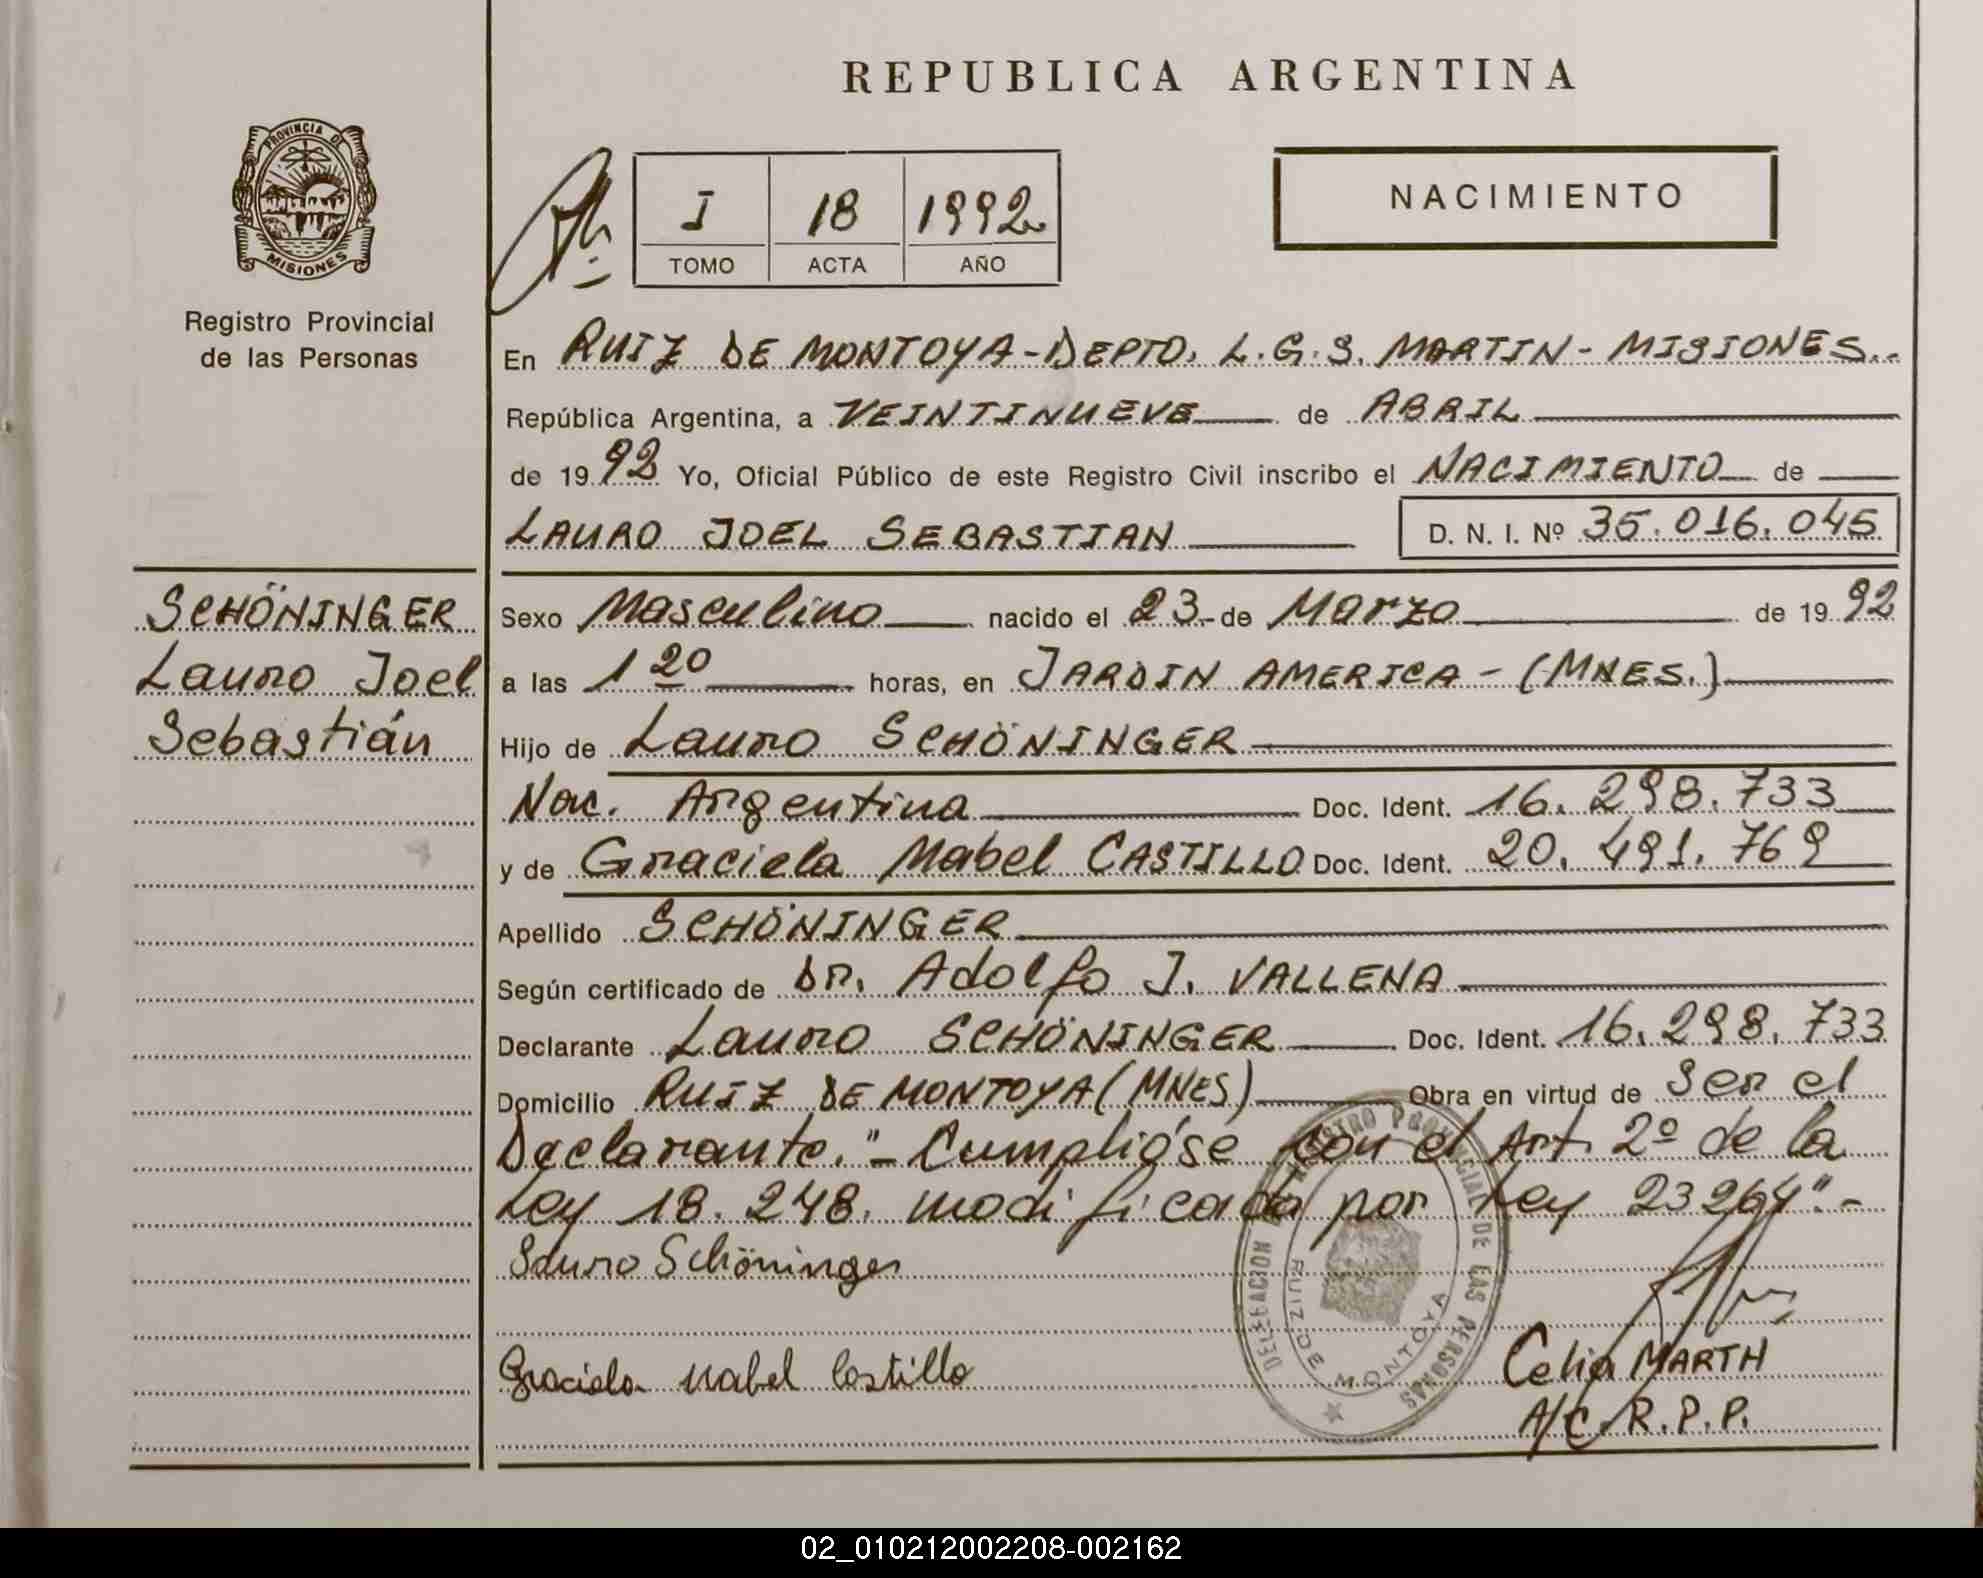 REPUBLICA ARGENTINA
PROVINCIA DE
MISIONES
Registro Provincial
de las Personas
I 18 1992
TOMO ACTA AÑO
NACIMIENTO
En RUIZ DE MONTOYA-DEPTO. L.G.S. MARTIN- MISIONES..
República Argentina, a VEINTINUEVE de ABRIL
de 1992 Yo, Oficial Público de este Registro Civil inscribo el NACIMIENTO de
LAURO JOEL SEBASTIAN D. N. I. Nº 35.016.045
SCHÖNINGER
Lauro Joel
Sebastián
Sexo Masculino nacido el 23-de Marzo de 1992
a las 1 20 horas, en JARDIN AMERICA - (MNES.)
Hijo de Lauro SCHÖNINGER
Nac. Argentina Doc. Ident. 16.298.733
y de Graciela Mabel CASTILLO Doc. Ident. 20.491.769
Apellido SCHÖNINGER
Según certificado de Dr. Adolfo J. VALLENA
Declarante Lauro SCHÖNINGER Doc. Ident. 16.298.733
Domicilio RUIZ DE MONTOYA (MNES) Obra en virtud de Ser el
Declarante."- Cumplióse con el Art. 2º de la
Ley 18.248. modificada por Ley 23264".-
Lauro Schöninger
Graciela Mabel Castillo
DELEGACION REGISTRO PROVINCIAL DE LAS PERSONAS
RUIZ DE MONTOYA
Celia MARTH
A/C. R.P.P.
02_010212002208-002162